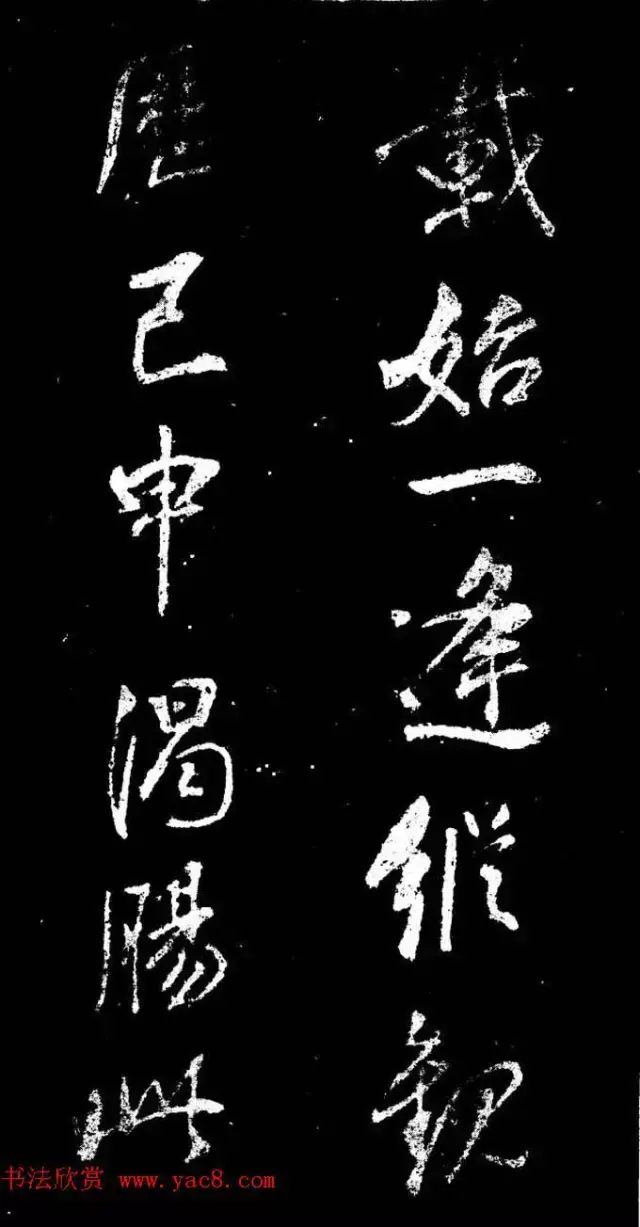 載始一逢縱觀
歷已申渴腸此
书法欣赏 www.yac8.com